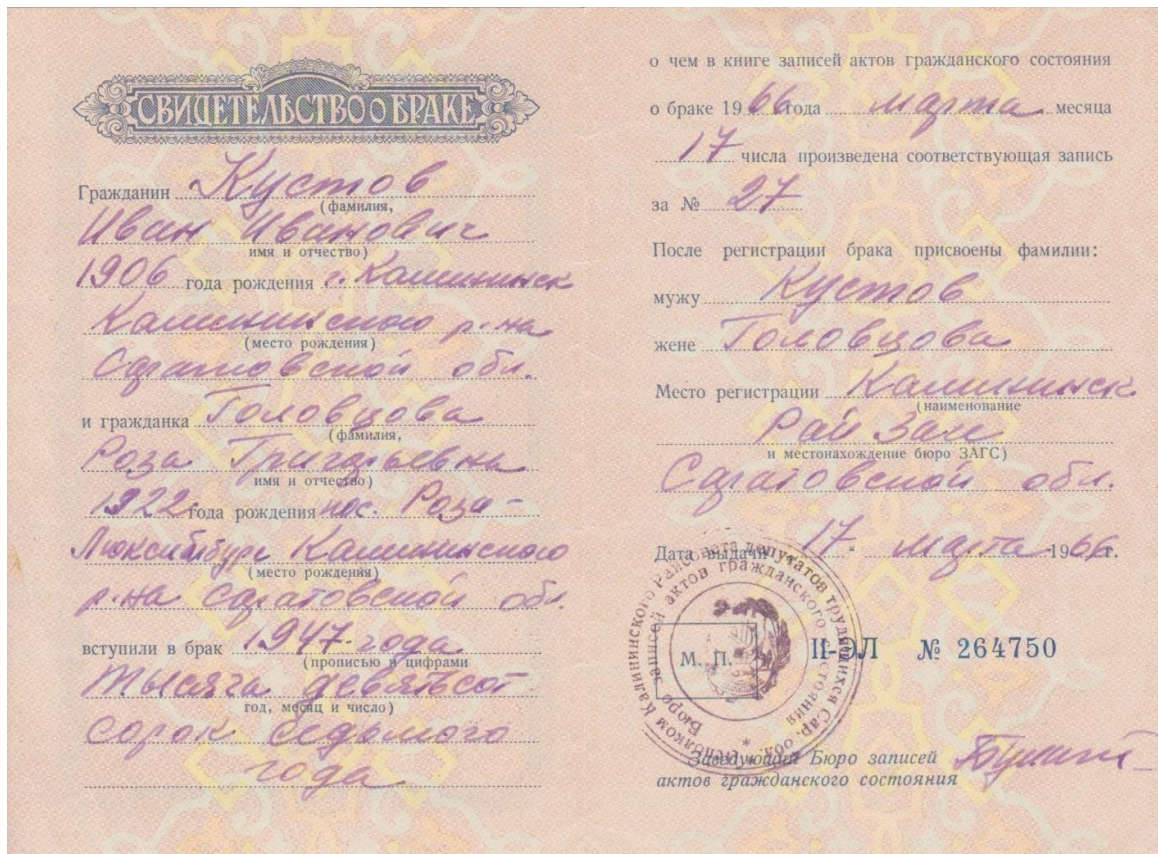 СВИДЕТЕЛЬСТВО О БРАКЕ
Гражданин Кустов
(фамилия,
Иван Иванович
имя и отчество)
1906 года рождения г. Калининск
Калининского р-на
(место рождения)
Саратовской обл.
и гражданка Головцова
(фамилия,
Роза Григорьевна
имя и отчество)
1922 года рождения пос. Роза-
Люксембург Калининского
(место рождения)
р-на Саратовской обл.
вступили в брак 1947 года
(прописью и цифрами
Тысяча девятьсот
год, месяц и число)
сорок седьмого
года
о чем в книге записей актов гражданского состояния
о браке 1966 года марта месяца
17 числа произведена соответствующая запись
за № 27
После регистрации брака присвоены фамилии:
мужу Кустов
жене Головцова
Место регистрации Калининск
(наименование
Рай Загс
и местонахождение бюро ЗАГС)
Саратовской обл.
Дата выдачи 17 " марта 1966 г.
Исполком Калининского Райсовета депутатов трудящихся Сар. обл.
Бюро записей актов гражданского состояния
М. П.
II-ЭЛ № 264750
Заведующий Бюро записей
актов гражданского состояния